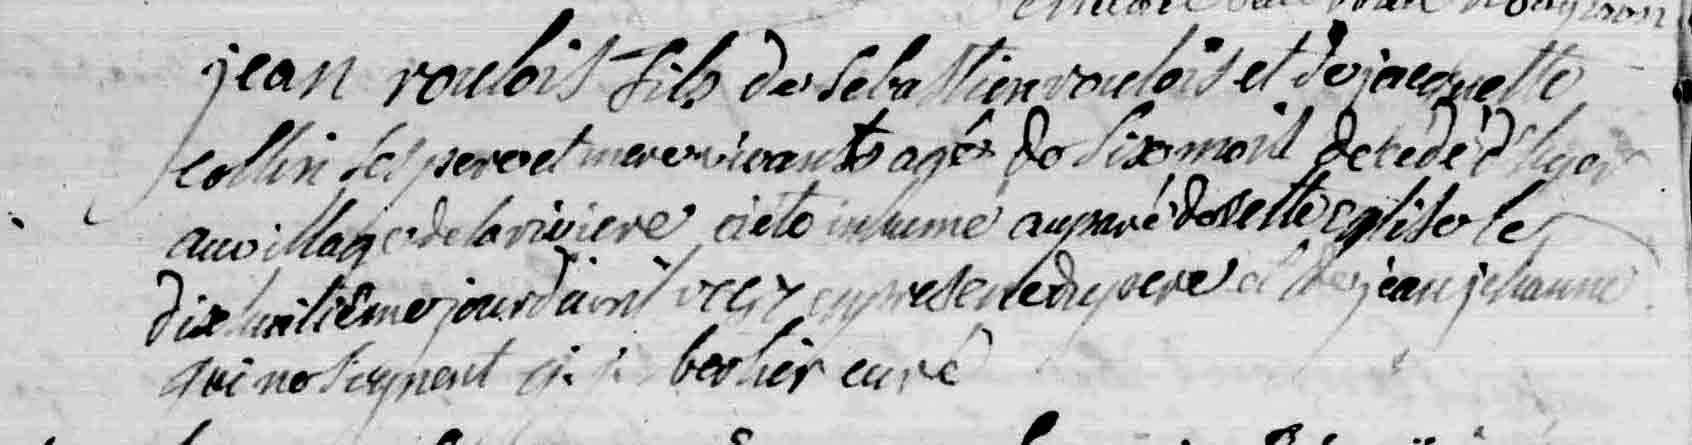 jean roulois fils de sebastien roulois et de jacquette
collin ses pere et mere vivants agé de six mois decédé d'hyer
au village de la riviere a été inhumé auparé de cette eglise le
dix huitiême jour d'avril en presence du pere et de jean jehanne
qui ne signent berhier curé